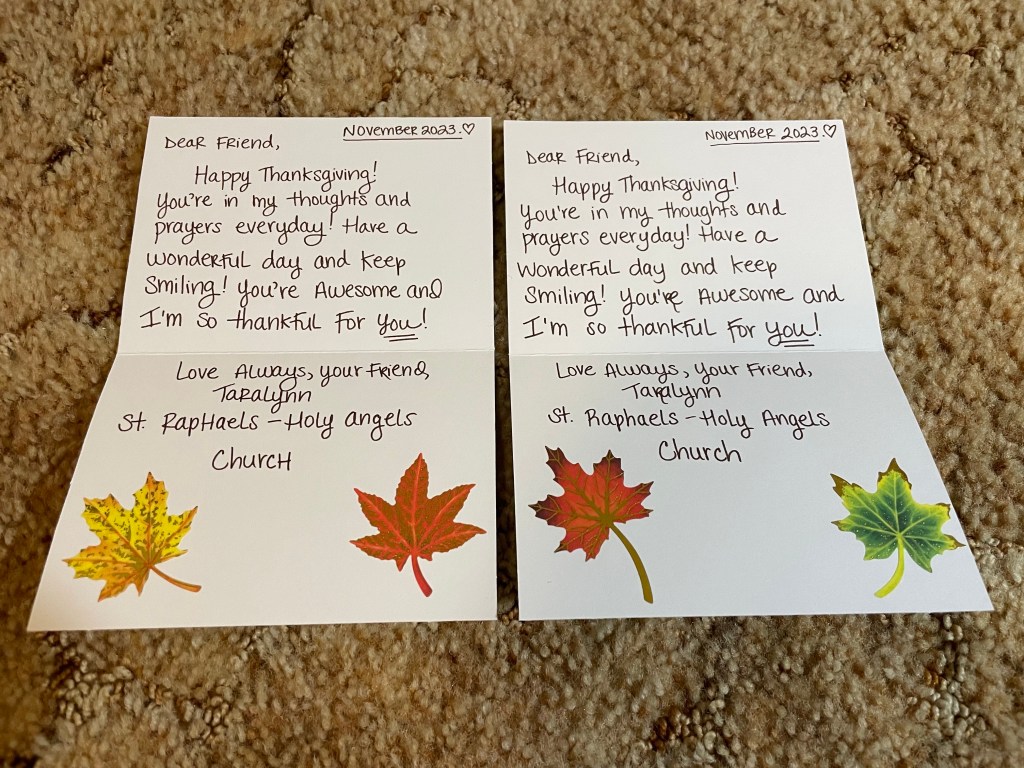 November 2023.♡
Dear Friend,
Happy Thanksgiving!
You're in my thoughts and
prayers everyday! Have a
wonderful day and keep
Smiling! You're Awesome and
I'm so thankful for you!
Love Always, your Friend,
Taralynn
St. Raphaels - Holy Angels
Church
November 2023.♡
Dear Friend,
Happy Thanksgiving!
You're in my thoughts and
prayers everyday! Have a
wonderful day and keep
Smiling! You're Awesome and
I'm so thankful for you!
Love Always, your Friend,
Taralynn
St. Raphaels - Holy Angels
Church